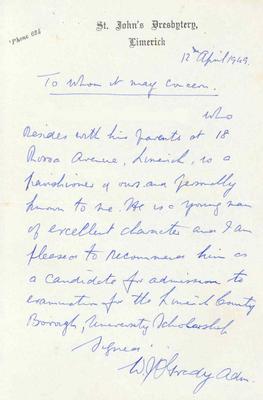 St. John's Presbytery,
Limerick
'Phone 621
12th April 1949.
To whom it may concern.
who
Resides with his parents at 18
Rossa Avenue, Limerick, is a
parishioner of ours and personally
known to me. He is a young man
of excellent character and I am
pleased to recommend him as
a candidate for admission to
examination for the Limerick County
Borough, University Scholarship
Signed
W J O'Grady Adm.